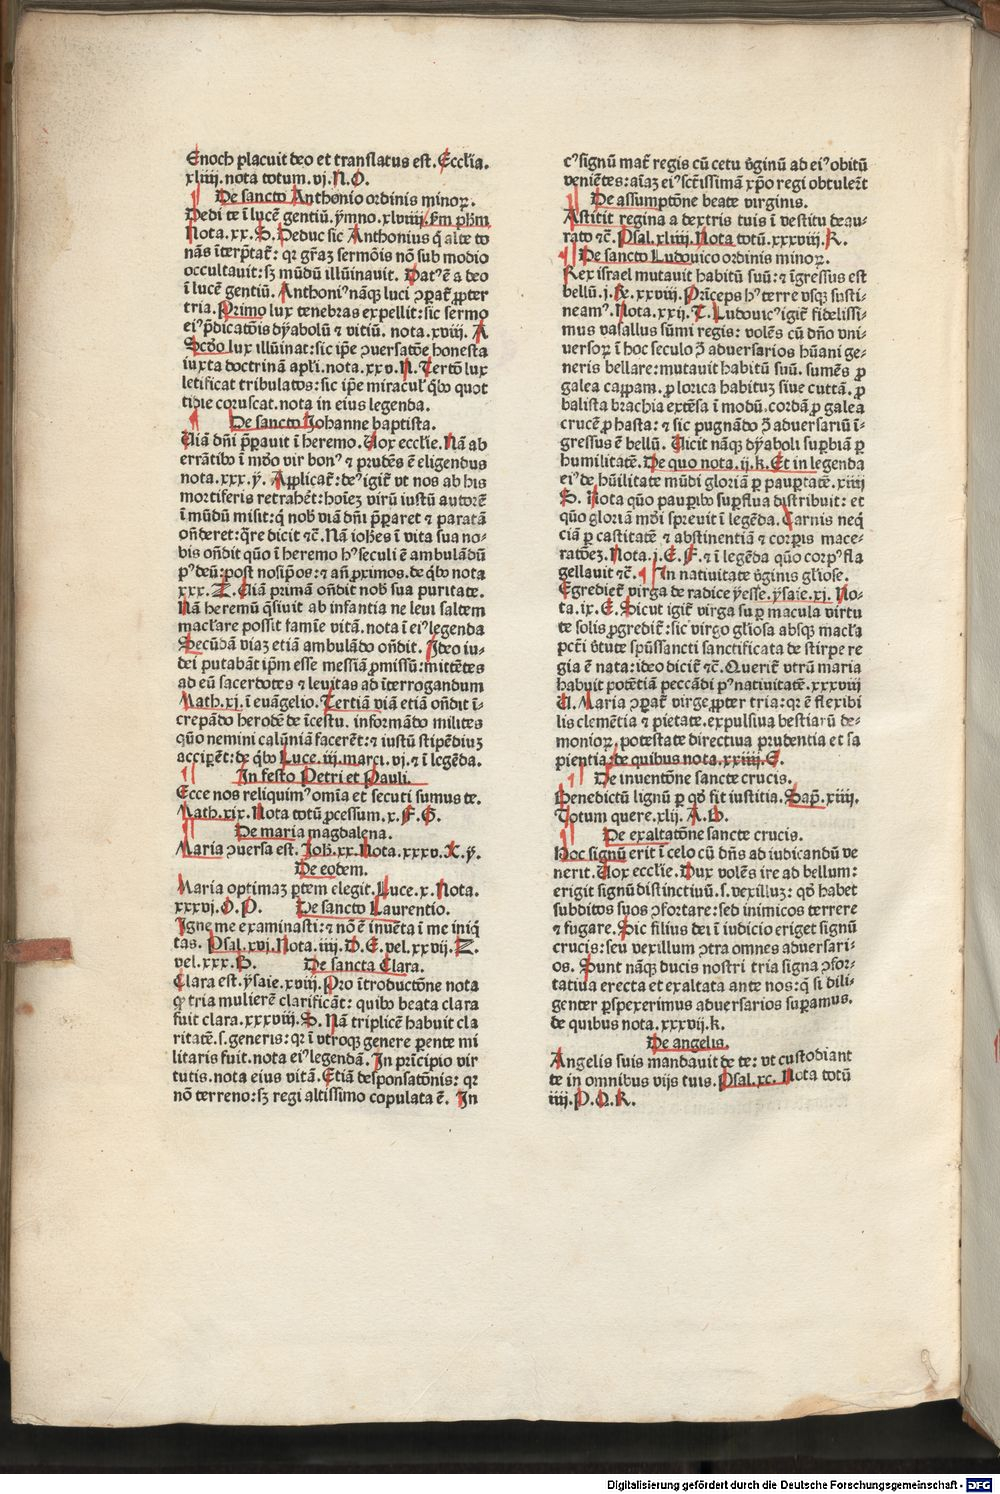 Enoch placuit deo et translatus est. Eccl'ia.
xliiij. nota totum. vj. N. O.
De sancto Anthonio ordinis minoꝝ.
Dedi te ī lucē gentiū. ymno. xlviiij. ẜm pb̄m
Nota. xx. S. Deduc sic Anthonius q̄ alte to
nās īterp̄tat᷑: qꝛ gr̄az sermōis nō sub modio
occultauit: sꝫ mūdū illūinauit. Dat᷒ ē a deo
ī lucē gentiū. Anthoni᷒ nāqꝫ luci ꝯparat᷑ ꝓpter
tria. Primo lux tenebras expellit: sic sermo
ei᷒ p̄dicatōis dyabolū ⁊ vitiū. nota. xviij. A
Sc̄do lux illūinat: sic ip̄e ꝯuersatōe honesta
iuxta doctrinā apl'i. nota. xxv. N. Tertō lux
letificat tribulatos: sic ip̄e miracul' q̄bꝰ quot
tidie coruscat. nota in eius legenda.
De sancto Johanne baptista.
Uiā dn̄i p̄parauit ī heremo. Uox eccl'ie. Nā ab
errātibꝰ ī mūdo vir bon᷒ ⁊ prudēs ē eligendus
nota. xxx. y. Applicat᷑: de᷒ igit᷑ vt nos ab his
mortiferis retraheret: hoīez virū iustū autorē
ī mūdū misit: q̄ nob̄ viā dn̄i p̄pararet ⁊ paratā
on̄deret: q̄re dicit ⁊c̄. Nā ioh̄es ī vita sua no-
bis on̄dit quō ī heremo h᷒ seculi ē ambulādū
p᷒ deū: post nosip̄os: ⁊ an̄ proximos. de q̄bꝰ nota
xxx. Z. Uiā primā on̄dit nob̄ sua puritate.
Nā heremū q̄siuit ab infantia ne leui saltem
macl'are possit famīe vitā. nota ī ei᷒ legenda
Secūdā viaz etiā ambulādo on̄dit. Ideo iu-
dei putabāt ip̄m esse messiā ꝓmissū: mittētes
ad eū sacerdotes ⁊ leuitas ad īterrogandum
Math. xj. ī euāgelio. Tertiā viā etiā on̄dit ī-
crepādo herodē de īcestu. informādo milites
quō nemini calūniā facerēt: ⁊ iustū stipēdiuꝫ
acciperēt: de q̄bꝰ Luce. iij. marci. vj. ⁊ ī legēda.
In festo Petri et Pauli.
Ecce nos reliquim᷒ omīa et secuti sumus te.
Math. xix. Nota totū ꝓcessum. x. F. G.
De maria magdalena.
Maria ꝯuersa est. Joh̄. xx. Nota. xxxv. X. y.
De eodem.
Maria optimaꝫ ꝑtem elegit. Luce. x. Nota.
xxxvj. O. P. De sancto Laurentio.
Igne me examinasti: ⁊ nō ē inuēta ī me iniq̄
tas. Psal. xvj. Nota. iiij. D. E. vel. xxvij. Z.
vel. xxx. B. De sancta Clara.
Clara est. ysaie. xviij. Pro ītroductōne nota
qꝫ tria mulierē clarificāt: quibꝰ beata clara
fuit clara. xxxviij. S. Nā triplicē habuit cla
ritatē. s. generis: qꝛ ī vtroqꝫ genere parente mi
litaris fuit. nota ei᷒ legendā. In prīcipio vir
tutis. nota eius vitā. Etiā desponsatōnis: qꝛ
nō terreno: sꝫ regi altissimo copulata ē. In
c᷒ signū mat̄ regis cū cetu v̄ginū ad ei᷒ obitū
veniētes: aīaꝫ ei᷒ sct̄issimā xp̄o regi obtulerūt
De assumptōne beate virginis.
Astitit regina a dextris tuis ī vestitu deau-
rato ⁊c̄. Psal. xliiij. Nota totū. xxxviij. R.
De sancto Ludouico ordinis minoꝝ.
Rex israel mutauit habitū suū: ⁊ īgressus est
bellū. j. Re. xxviij. Prīceps h᷒ terre vsqꝫ susti-
neam᷒. Nota. xxij. T. Ludouic᷒ igit᷑ fidelissi-
mus vasallus sūmi regis: volēs cū dn̄o vni-
uersoꝝ ī hoc seculo ꝯ̄ aduersarios hūani ge-
neris bellare: mutauit habitū suū. sumēs ꝓ
galea cappam. ꝓ lorica habituꝫ siue cuttā. ꝓ
balista brachia extēsa ī modū. cordā ꝓ galea
crucē ꝓ hasta: ⁊ sic pugnādo ꝯ̄ aduersariū ī-
gressus ē bellū. Uicit nāqꝫ dyaboli suꝑbiā ꝑ
humilitatē. De quo nota. ij. k. Et in legenda
ei᷒ de hūilitate mūdi gloriā ꝑ pauꝑtatē. xiiij
S. Nota quō pauꝑibꝰ suꝑflua distribuit: et
quō gloriā mūdi spreuit ī legēda. Carnis neq̄
ciā ꝑ castitatē ⁊ abstinentiā ⁊ corꝑis mace-
ratōeꝫ. Nota. j. E. F. ⁊ ī legēda quō corp᷒ fla
gellauit ⁊c̄. In natiuitate v̄ginis gl'iose.
Egrediet᷑ virga de radice yesse. ysaie. xj. No-
ta. ix. E. Sicut igit᷑ virga suꝑ macula virtu
te solis ꝓgredit᷑: sic virgo gl'iosa absqꝫ macl'a
pctī v̄tute spūssancti sanctificata de stirpe re
gia ē nata: ideo dicit᷑ ⁊c̄. Querit᷑ vtrū maria
habuit potētiā peccādi p᷒ natiuitatē. xxxviij
U. Maria ꝯparat᷑ virge ꝓpter tria: qꝛ ē flexibi
lis clemētia ⁊ pietate. expulsiua bestiarū de-
monioꝝ. potestate directiua prudentia et sa
pientia: de quibus nota. xxiiij. S.
De inuentōne sancte crucis.
Benedictū lignū ꝑ qd̄ fit iustitia. Sap̄. xiiij.
Totum quere. xlij. A. B.
De exaltatōne sancte crucis.
Hoc signū erit ī celo cū dn̄s ad iudicandū ve
nerit. Uox eccl'ie. Dux volēs ire ad bellum:
erigit signū distinctiuū. s. vexilluꝫ: qd̄ habet
subditos suos ꝯfortare: sed inimicos terrere
⁊ fugare. Sic filius dei ī iudicio eriget signū
crucis: seu vexillum ꝯtra omnes aduersari-
os. Sunt nāqꝫ ducis nostri tria signa ꝯfor-
tatiua erecta et exaltata ante nos: q̄ si dili-
genter ꝑspexerimus aduersarios suꝑamus.
de quibus nota. xxxvij. k.
De angelis.
Angelis suis mandauit de te: vt custodiant
te in omnibus vijs tuis. Psal. xc. Nota totū
iiij. P. Q. R.
Digitalisierung gefördert durch die Deutsche Forschungsgemeinschaft - DFG